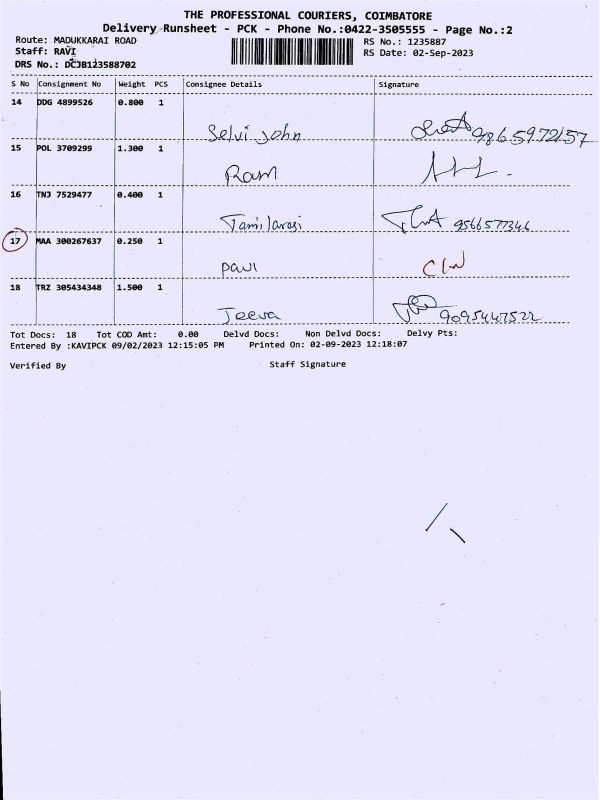 THE PROFESSIONAL COURIERS, COIMBATORE
Delivery Runsheet - PCK - Phone No.:0422-3505555 - Page No.:2
Route: MADUKKARAI ROAD RS No.: 1235887
Staff: RAVI RS Date: 02-Sep-2023
DRS No.: DCJB123588702
S No Consignment No Weight PCS Consignee Details Signature
14 DDG 4899526 0.800 1
Selvi john 9865972157
15 POL 3709299 1.300 1
Ram
16 TNJ 7529477 0.400 1
Tamilarasi 9566577346
17 MAA 300267637 0.250 1
Paul
18 TRZ 305434348 1.500 1
Jeeva 9095447522
Tot Docs: 18 Tot COD Amt: 0.00 Delvd Docs: Non Delvd Docs: Delvy Pts:
Entered By :KAVIPCK 09/02/2023 12:15:05 PM Printed On: 02-09-2023 12:18:07
Verified By Staff Signature